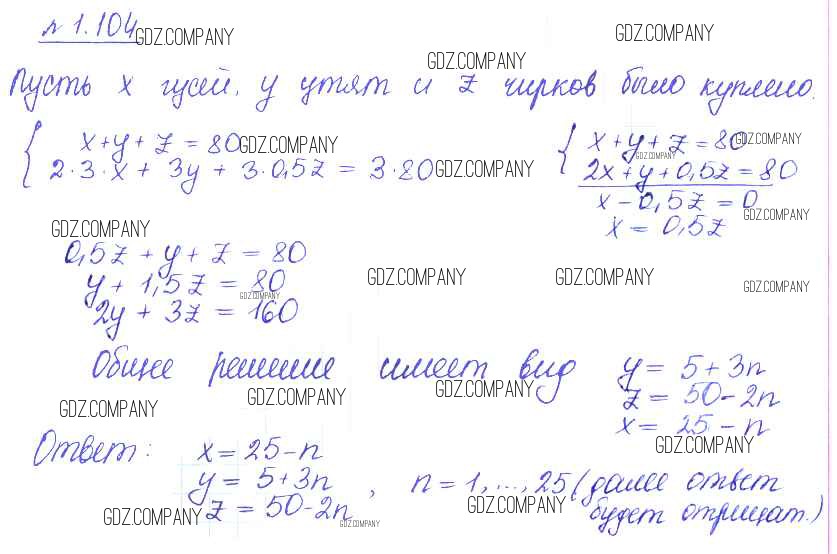 № 1.104 GDZ.COMPANY GDZ.COMPANY
GDZ.COMPANY
Пусть x гусей, y утят и z чирков было куплено.
{ x + y + z = 80 GDZ.COMPANY
2·3·x + 3y + 3·0,5z = 3·80 GDZ.COMPANY
{ x + y + z = 80 GDZ.COMPANY
GDZ.COMPANY
2x + y + 0,5z = 80
x - 0,5z = 0
GDZ.COMPANY
x = 0,5z
GDZ.COMPANY
0,5z + y + z = 80
y + 1,5z = 80
GDZ.COMPANY GDZ.COMPANY GDZ.COMPANY GDZ.COMPANY
2y + 3z = 160
Общее решение имеет вид y = 5 + 3n
GDZ.COMPANY GDZ.COMPANY GDZ.COMPANY z = 50 - 2n
x = 25 - n
GDZ.COMPANY
Ответ: x = 25 - n
y = 5 + 3n , n = 1, ..., 25 (далее ответ
GDZ.COMPANY z = 50 - 2n GDZ.COMPANY будет отрицат.)
GDZ.COMPANY